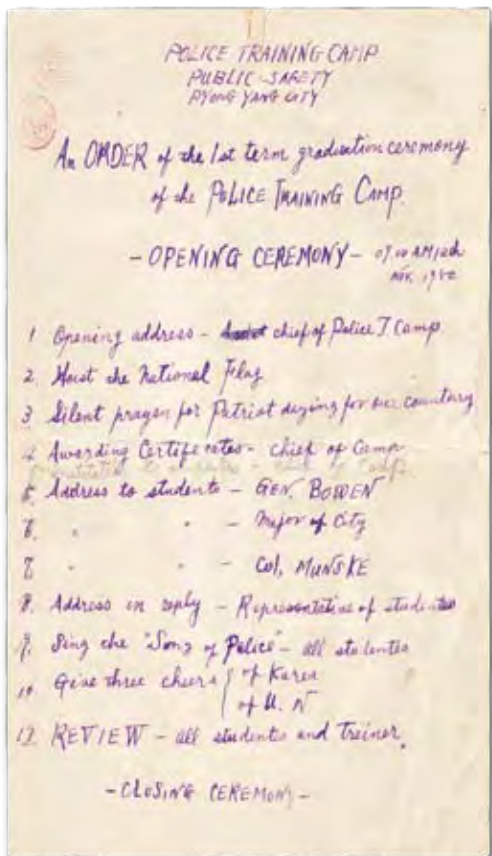 POLICE TRAINING CAMP
PUBLIC SAFETY
PYONG YANG CITY
An ORDER of the 1st term graduation ceremony
of the POLICE TRAINING CAMP.
- OPENING CEREMONY - 09.00 AM
Nov. 1950
1 Opening address - chief of Police T. Camp
2. Hoist the National Flag
3 Silent prayer for Patriot dying for our country
4 Awarding Certificates - chief of Camp
5. Address to students - GEN. BOWEN
6. " " - Major of City
7. " " - Col, MUNSKE
8. Address in reply - Representative of students
9. Sing the "Song of Police" - all students
10 Give three cheers { of Korea
of U. N
12. REVIEW - all students and treiner.
- CLOSING CEREMONY -